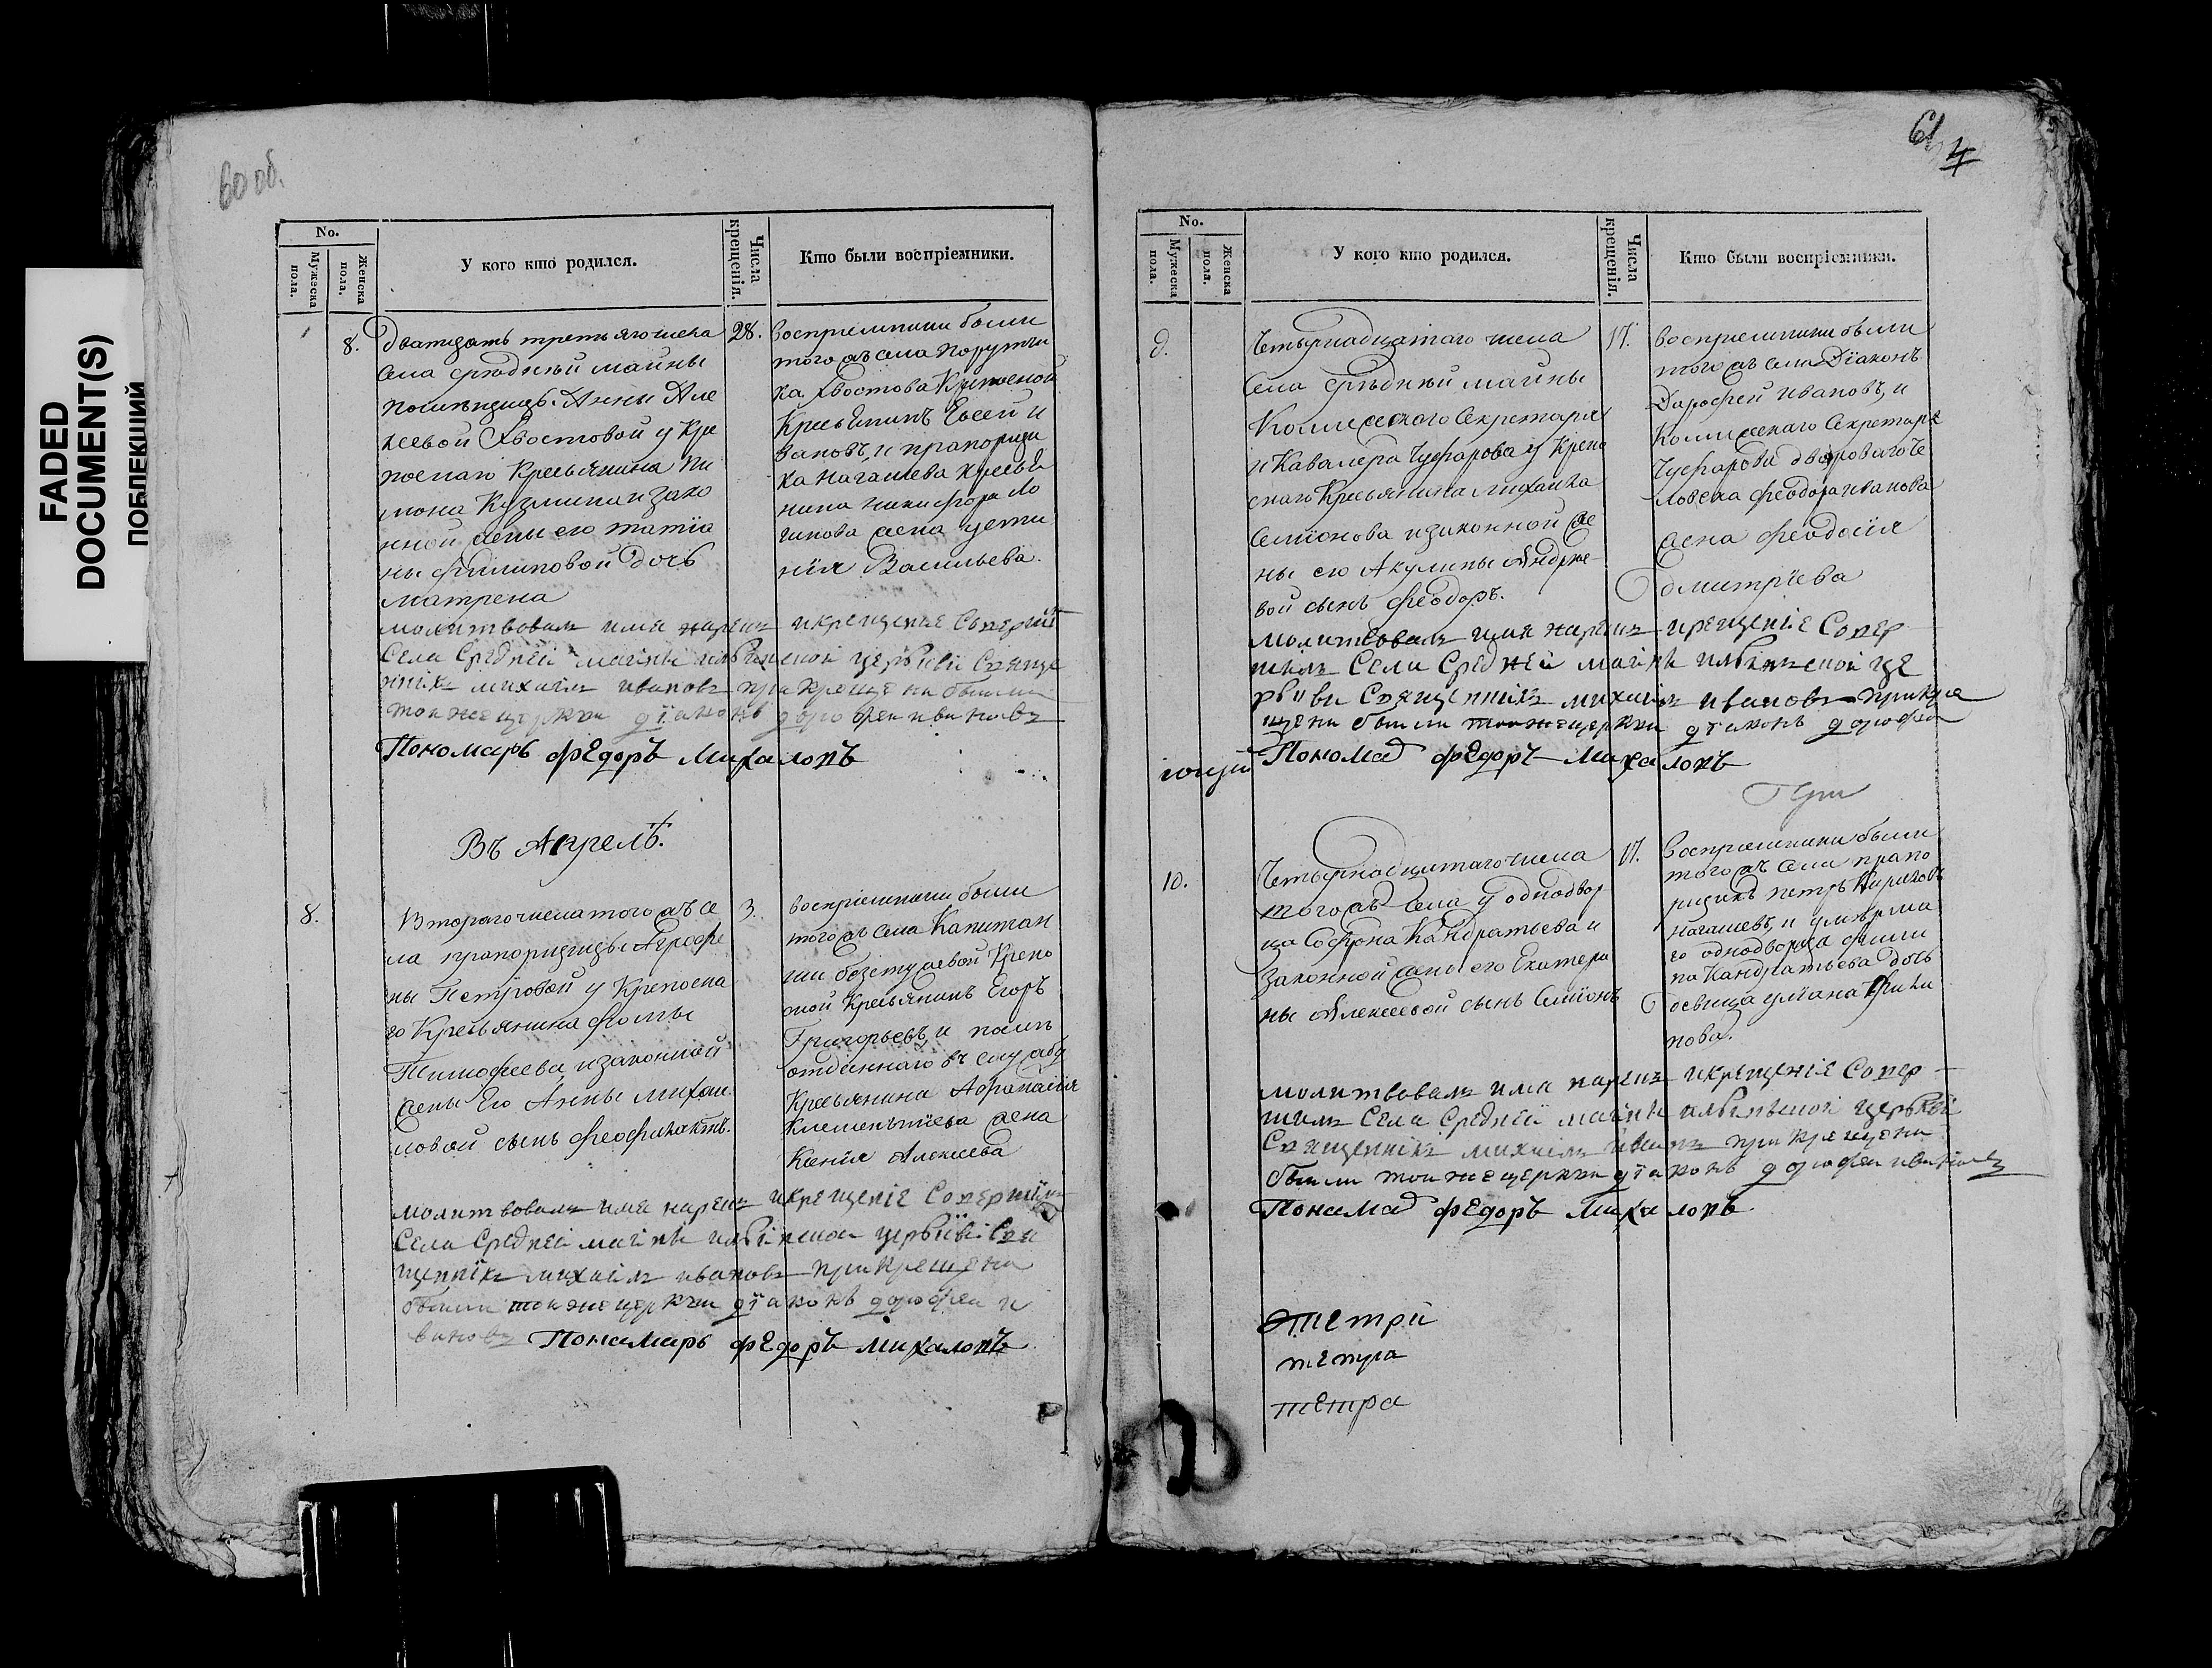 FADED
DOCUMENT(S)
ПОБЛЕКШИЙ
60 об.
No.
Мужеска пола.
Женска пола.
У кого кто родился.
Числа крещенія.
Кто были воспріемники.
8.
Дватцать третьяго числа
села средней майны
помещицы Анны Але
ксевой Хвостовой у кре
посного крестьянина
мона Кузмина и зако
нной жены его татїа
ны филиповой дочь
матрена
28.
воспріемники были
того жъ села поручи
ка Хвостова крепосной
крестьянинъ Евсей и
вановъ, и прапорщи
ка нагаткева крестья
нина никифора Ло
гинова жена усти
нїя Васильева.
молитвовалъ имя нарекъ и крещенїе совершилъ
села средней майны церкви священ
никъ михаилъ ивановъ при крещени были
тои же церкви дїаконъ дорофеи ивановъ
Пономарь федоръ михаловъ
Въ Апрелѣ.
8.
Втораго числа того жъ се
ла прапорщицы Аграфе
ны Петровой у крепосна
го крестьянина фомы
Тимофеева, и законной
жены его Анны михаи
ловой сынъ феофилактъ.
3.
воспріемники были
того жъ села капитан
ши крепо
стной крестьянинъ Егоръ
Григорьевъ, и
отданнаго въ службу
крестьянина Афанасїя
Клементїева жена
Ксенїя Алексеева
молитвовалъ имя нарекъ и крещенїе совершилъ
села средней майны церкви свя
щенникъ михаилъ ивановъ при крещени
были тои же церкви дїаконъ дорофеи и
вановъ Понамарь федоръ михаловъ
61
4
No.
Мужеска пола.
Женска пола.
У кого кто родился.
Числа крещенія.
Кто были воспріемники.
9.
Четырнадцатаго числа
села средней майны
Коллежскаго секретаря
и Кавалера Чуфарова у крепо
снаго крестьянина михаила
семїонова и законной же
ны его Акулины Андрѣе
вой сынъ феодоръ.
17.
воспріемники были
того жъ села Дїаконъ
Дарофей ивановъ, и
Коллежскаго секретаря
Чуфарова двороваго че
ловека феодора иванова
жена феодосїя
дмитрїева
молитвовалъ имя нарекъ крещенїе совер
шилъ села средней майны це
ркви священникъ михаилъ ивановъ при кре
щени были тои же церкви дїаконъ дорофеи
Пономар федоръ михаловъ
10.
Четырнадцатаго числа
того жъ села у однодвор
ца Софрона Кандратьева и
законной жены его Екатери
ны Алексеевой сынъ семїонъ
17.
воспріемники были
того жъ села прапо
рщикъ петръ
нагаткевъ, и умерша
го однодворца фили
па Кандратьева дочь
девица улїана фили
пова.
молитвовалъ имя нарекъ и крещенїе совер
шилъ села средней майны церкви
священникъ михаилъ ивановъ при крещени
были тои же церкви дїаконъ дорофеи ивановъ
Понамар федоръ михаловъ